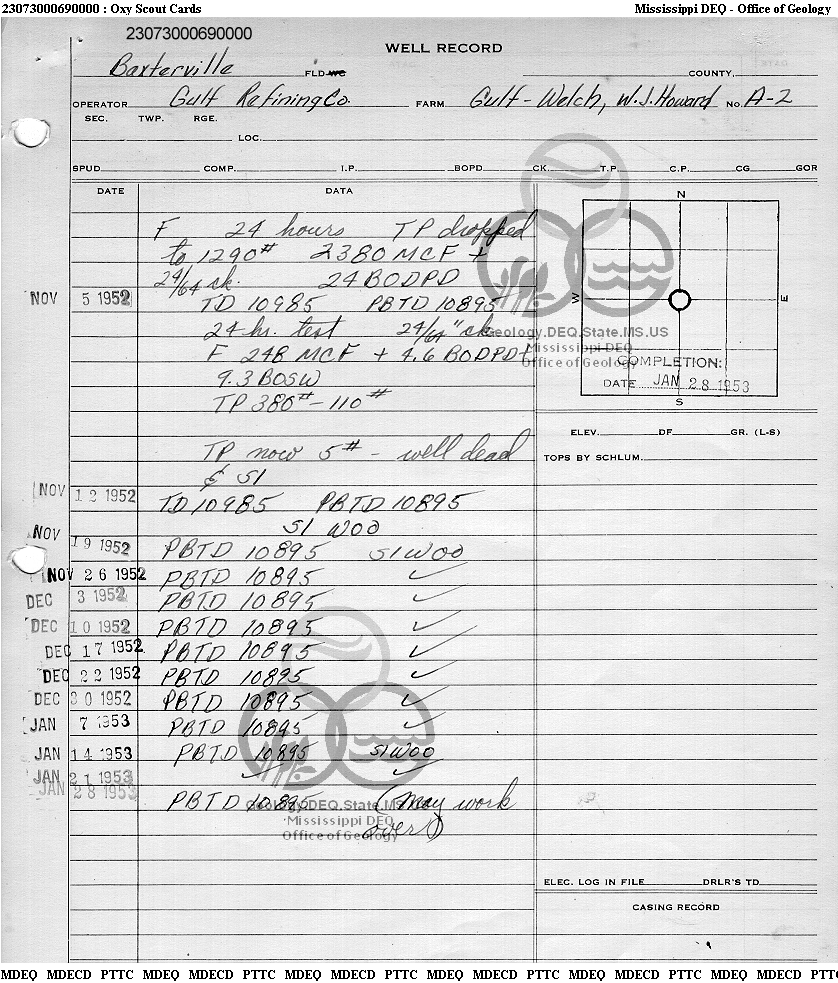 23073000690000 : Oxy Scout Cards Mississippi DEQ - Office of Geology
23073000690000
WELL RECORD
Baxterville FLD WC COUNTY.
OPERATOR Gulf Refining Co. FARM Gulf - Welch, W.J. Howard No. A-2
SEC. TWP. RGE.
LOC.
SPUD COMP. I.P. BOPD CK. T.P. C.P. CG GOR
DATE DATA
N
F 24 hours TP dropped
to 1290# 2380 MCF +
24/64 ck. 24 BODPD
NOV 5 1952 TD 10985 PBTD 10895
W E
24 hr. test 24/64" ck
Geology.DEQ.State.MS.US
Mississippi DEQ
Office of Geology
F 248 MCF + 4.6 BODPD +
9.3 BOSW
TP 380# - 110#
COMPLETION:
DATE JAN 28 1953
S
ELEV. DF GR. (L-S)
TOPS BY SCHLUM.
TP now 5# - well dead
& SI
NOV 12 1952 TD 10985 PBTD 10895
SI WOO
NOV 19 1952 PBTD 10895 SI WOO
NOV 26 1952 PBTD 10895 ✓
DEC 3 1952 PBTD 10895 ✓
DEC 10 1952 PBTD 10895 ✓
DEC 17 1952 PBTD 10895 ✓
DEC 22 1952 PBTD 10895 ✓
DEC 30 1952 PBTD 10895 ✓
JAN 7 1953 PBTD 10895 ✓
JAN 14 1953 PBTD 10895 SI WOO
JAN 21 1953 ✓ ✓
JAN 28 1953 PBTD 10895 (may work
over)
Geology.DEQ.State.MS.US
Mississippi DEQ
Office of Geology
ELEC. LOG IN FILE DRLR'S TD
CASING RECORD
MDEQ MDECD PTTC MDEQ MDECD PTTC MDEQ MDECD PTTC MDEQ MDECD PTTC MDEQ MDECD PTTC MDEQ MDECD PTTC